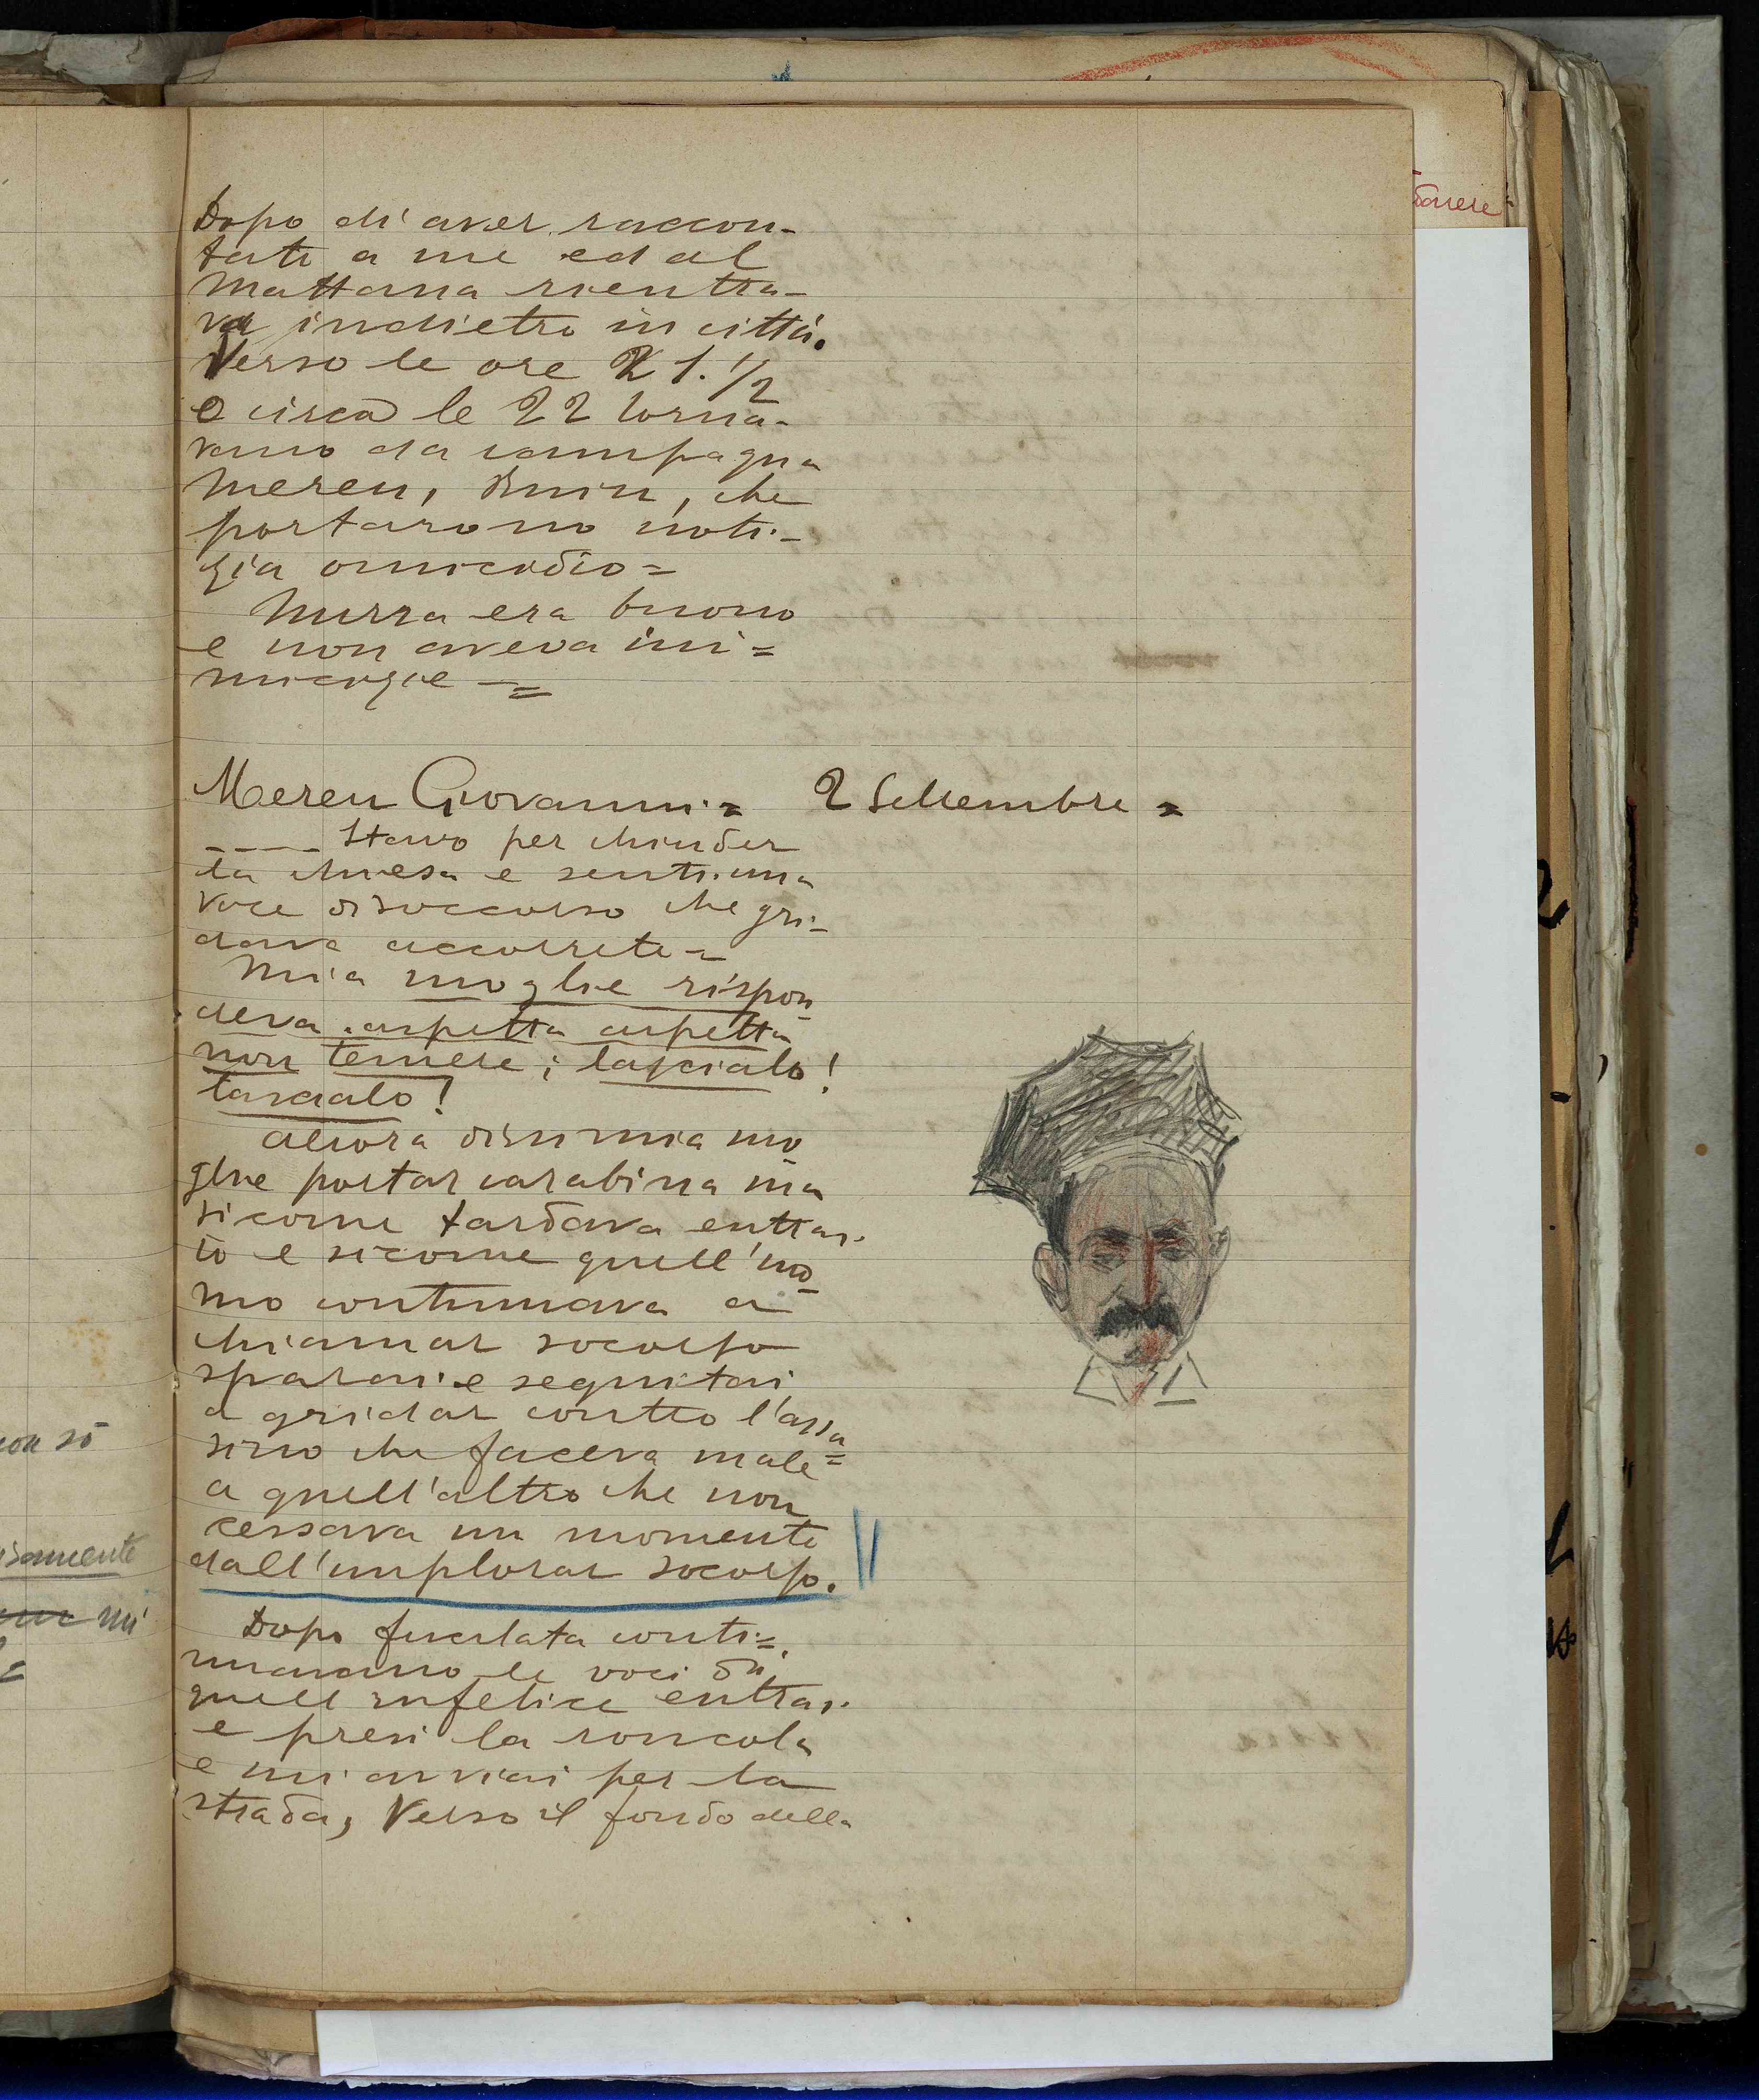 Dopo di aver raccon-
tato a me ed al
Mattana rientra-
va indietro in città.
Verso le ore 21.1/2
o circa le 22 torna-
vano da campagna
Mereu, che
portarono noti-
zia omicidio=
Murra era buono
e non aveva ini=
micizie =
Mereu Giovanni = 2 Settembre =
Stavo per chiuder
la chiesa e sentii una
voce di soccorso che gri-
dava accorrete -
Mia moglie rispon
deva aspetta aspetta
non temere; lascialo!
lascialo!
allora dissi mia mo
glie portar carabina ma
sicome tardava entrai
io e sicome quell'uo
mo continuava a
chiamar socorso
sparai e seguitai
a gridar contro l'assa
sino che faceva male=
a quell'altro che non
cessava un momento
dall'implorar socorso.
Dopo fucilata conti=
nuavano le voci di
quell infelice entrai
e presi la roncola
e mi avviai per la
strada, Verso il fondo della
non sò
mi